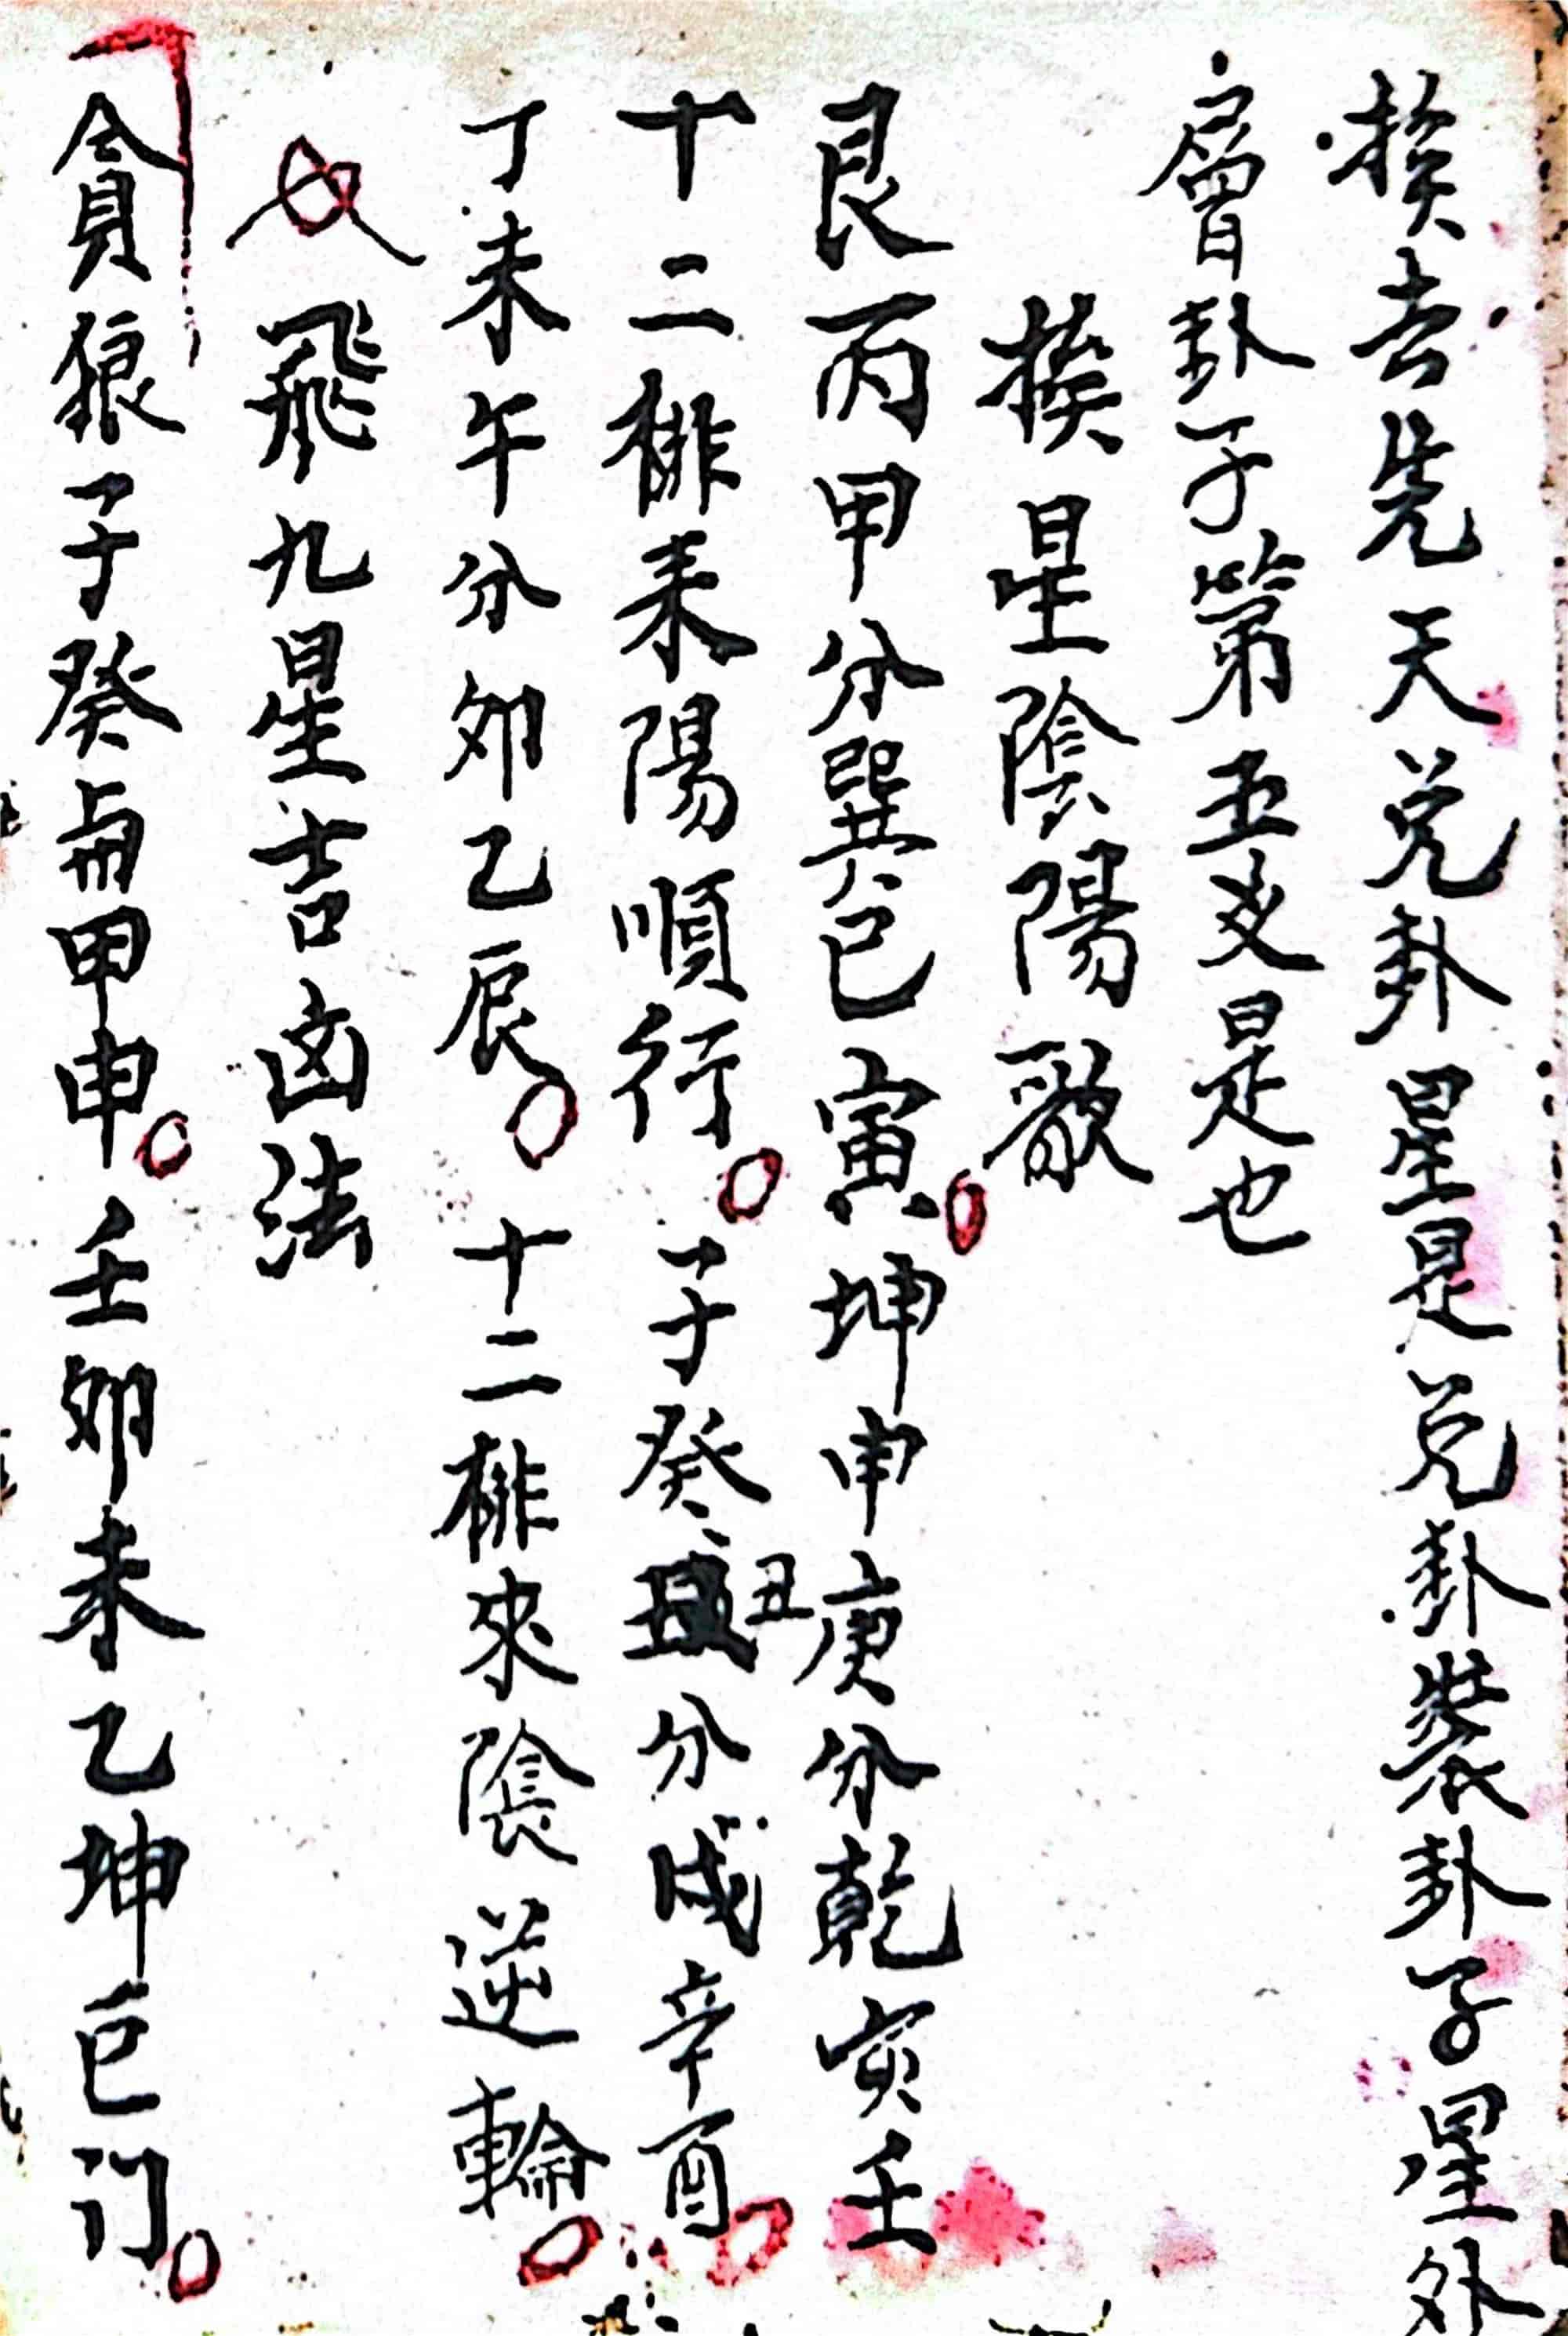 挨去先天兌卦星是兌卦裝卦子星外
層卦子第五爻是也
挨星陰陽歌
艮丙甲分巽巳寅。坤申庚分乾亥壬
十二排来陽順行。子癸丑分戌辛酉。
丁未午分卯乙辰。十二排來陰逆輪。
飛九星吉凶法
貪狼子癸并甲申。壬卯未乙坤巨门。